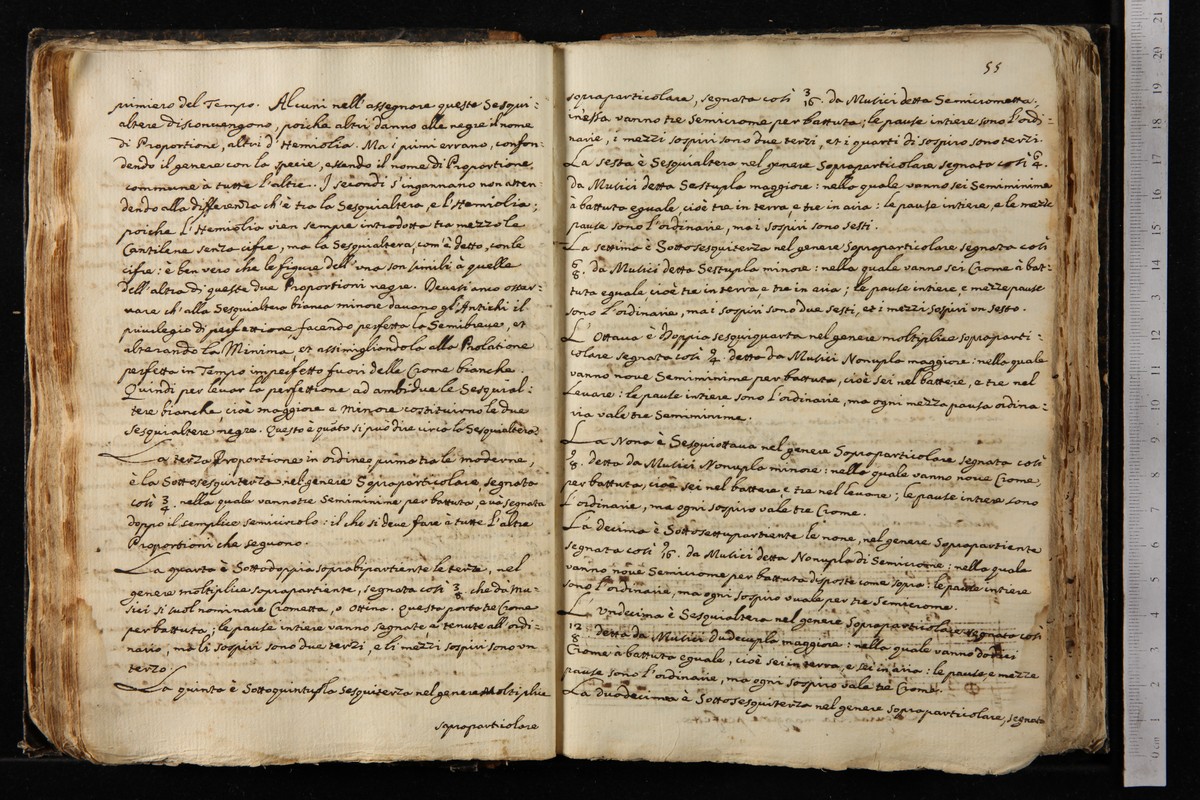 primiero del Tempo. Alcuni nell'assegnare queste Sesqui:
altere disconuengono, poiche altri danno alle negre il nome
di Proportione, altri d'Hemiolia. Ma i primi errano, confon:
dendo il genere con la specie, essendo il nome di Proportione
commune à tutte l'altre. I secondi s'ingannano non atten:
dendo alla differenza ch'è tra la Sesquialtera, e l'Hemiolia;
poiche l'Hemiolia vien sempre introdotta tra mezzo le
Cantilene senza cifre, ma la Sesquialtera, com'è detto, con le
cifre: è ben vero che le figure dell'vna son simili à quelle
dell'altra di queste due Proportioni negre. Deuesi anco osser:
uare ch'alla Sesquialtera bianca minore dauano gl'Antichi il
priuilegio di perfettione, facendo perfetta la Semibreue, et
alterando la Minima, et assimigliandola alla Prolatione
perfetta in Tempo imperfetto fuori delle Crome bianche.
Quindi per leuar la perfettione ad ambidue le Sesquial:
tere bianche cioè maggiore e minore costituirno le due
sesquialtere negre. Questo è quāto si può dire circa la Sesquialtera.
La terza Proportione in ordine, e prima tra le moderne,
è la Sottosesquiterza nel genere Sopraparticolare, segnata
così 3/4. nella quale vanno tre Semiminime per battuta, e và segnata
doppo il semplice semicircolo: il che si deue fare à tutte l'altre
Proportioni che seguono.
La quarta è Sottodoppia soprabipartiente le terze, nel
genere moltiplice soprapartiente, segnata così 3/8. che da Mu:
sici si suol nominare Crometta, o Ottina. Questa porta tre Crome
per battuta; le pause intiere vanno segnate, e tenute all'ordi:
nario, ma li sospiri sono due terzi, e li mezzi sospiri sono vn
terzo.
La quinta è Sottoquintupla Sesquiterza nel genere Moltiplice
sopraparticolare
55
sopraparticolare, segnata così 3/16. da Musici detta Semicrometta,
in essa vanno tre Semicrome per battuta; le pause intiere sono l'ordi:
narie, i mezzi sospiri sono due terzi, et i quarti di sospiro sono terzi.
La sesta è Sesquialtera nel genere Sopraparticolare segnata così 6/4.
da Musici detta Sestupla maggiore: nella quale vanno sei Semiminime
à battuta eguale, cioè tre in terra, e tre in aria: le pause intiere, e le mezze
pause sono l'ordinarie, mai sospiri sono sesti.
La settima è Sottosesquiterza nel genere Sopraparticolare segnata così
6/8. da Musici detta Sestupla minore: nella quale vanno sei Crome à bat:
tuta eguale, cioè tre in terra, e tre in aria; le pause intiere, e mezze pause
sono l'ordinarie, ma i sospiri sono due sesti, et i mezzi sospiri vn sesto.
L'Ottaua è Doppia sesquiquarta nel genere moltiplice sopraparti:
colare segnata così 9/4. detta da Musici Nonupla maggiore: nella quale
vanno noue Semiminime per battuta, cioè sei nel battere, e tre nel
Leuare: le pause intiere sono l'ordinarie, ma ogni mezza pausa ordina:
ria vale tre Semiminime.
La Nona è Sesquiottaua nel genere Sopraparticolare segnata così
9/8. detta da Musici Nonupla minore: nella quale vanno noue Crome,
per battuta, cioè sei nel battere e tre nel leuare; le pause intiere sono
l'ordinarie, ma ogni sospiro vale tre Crome.
La decima è Sottosettupartiente le none, nel genere Soprapartiente
segnata così 9/16. da Musici detta Nonupla di Semicrome; nella quale
vanno noue Semicrome per battuta disposte come sopra: le pause intiere
sono l'ordinarie, ma ogni sospiro vuale per tre Semicrome.
La Vndecima è Sesquialtera nel genere Sopraparticolare segnata così
12/8. detta da Musici Dudecupla maggiore: nella quale vanno dodici
Crome à battuta eguale, cioè sei in terra, e sei in aria: le pause e mezze
pause sono l'ordinarie, ma ogni sospiro vale tre Crome.
La duodecima è Sottosesquiterza nel genere sopraparticolare, segnata